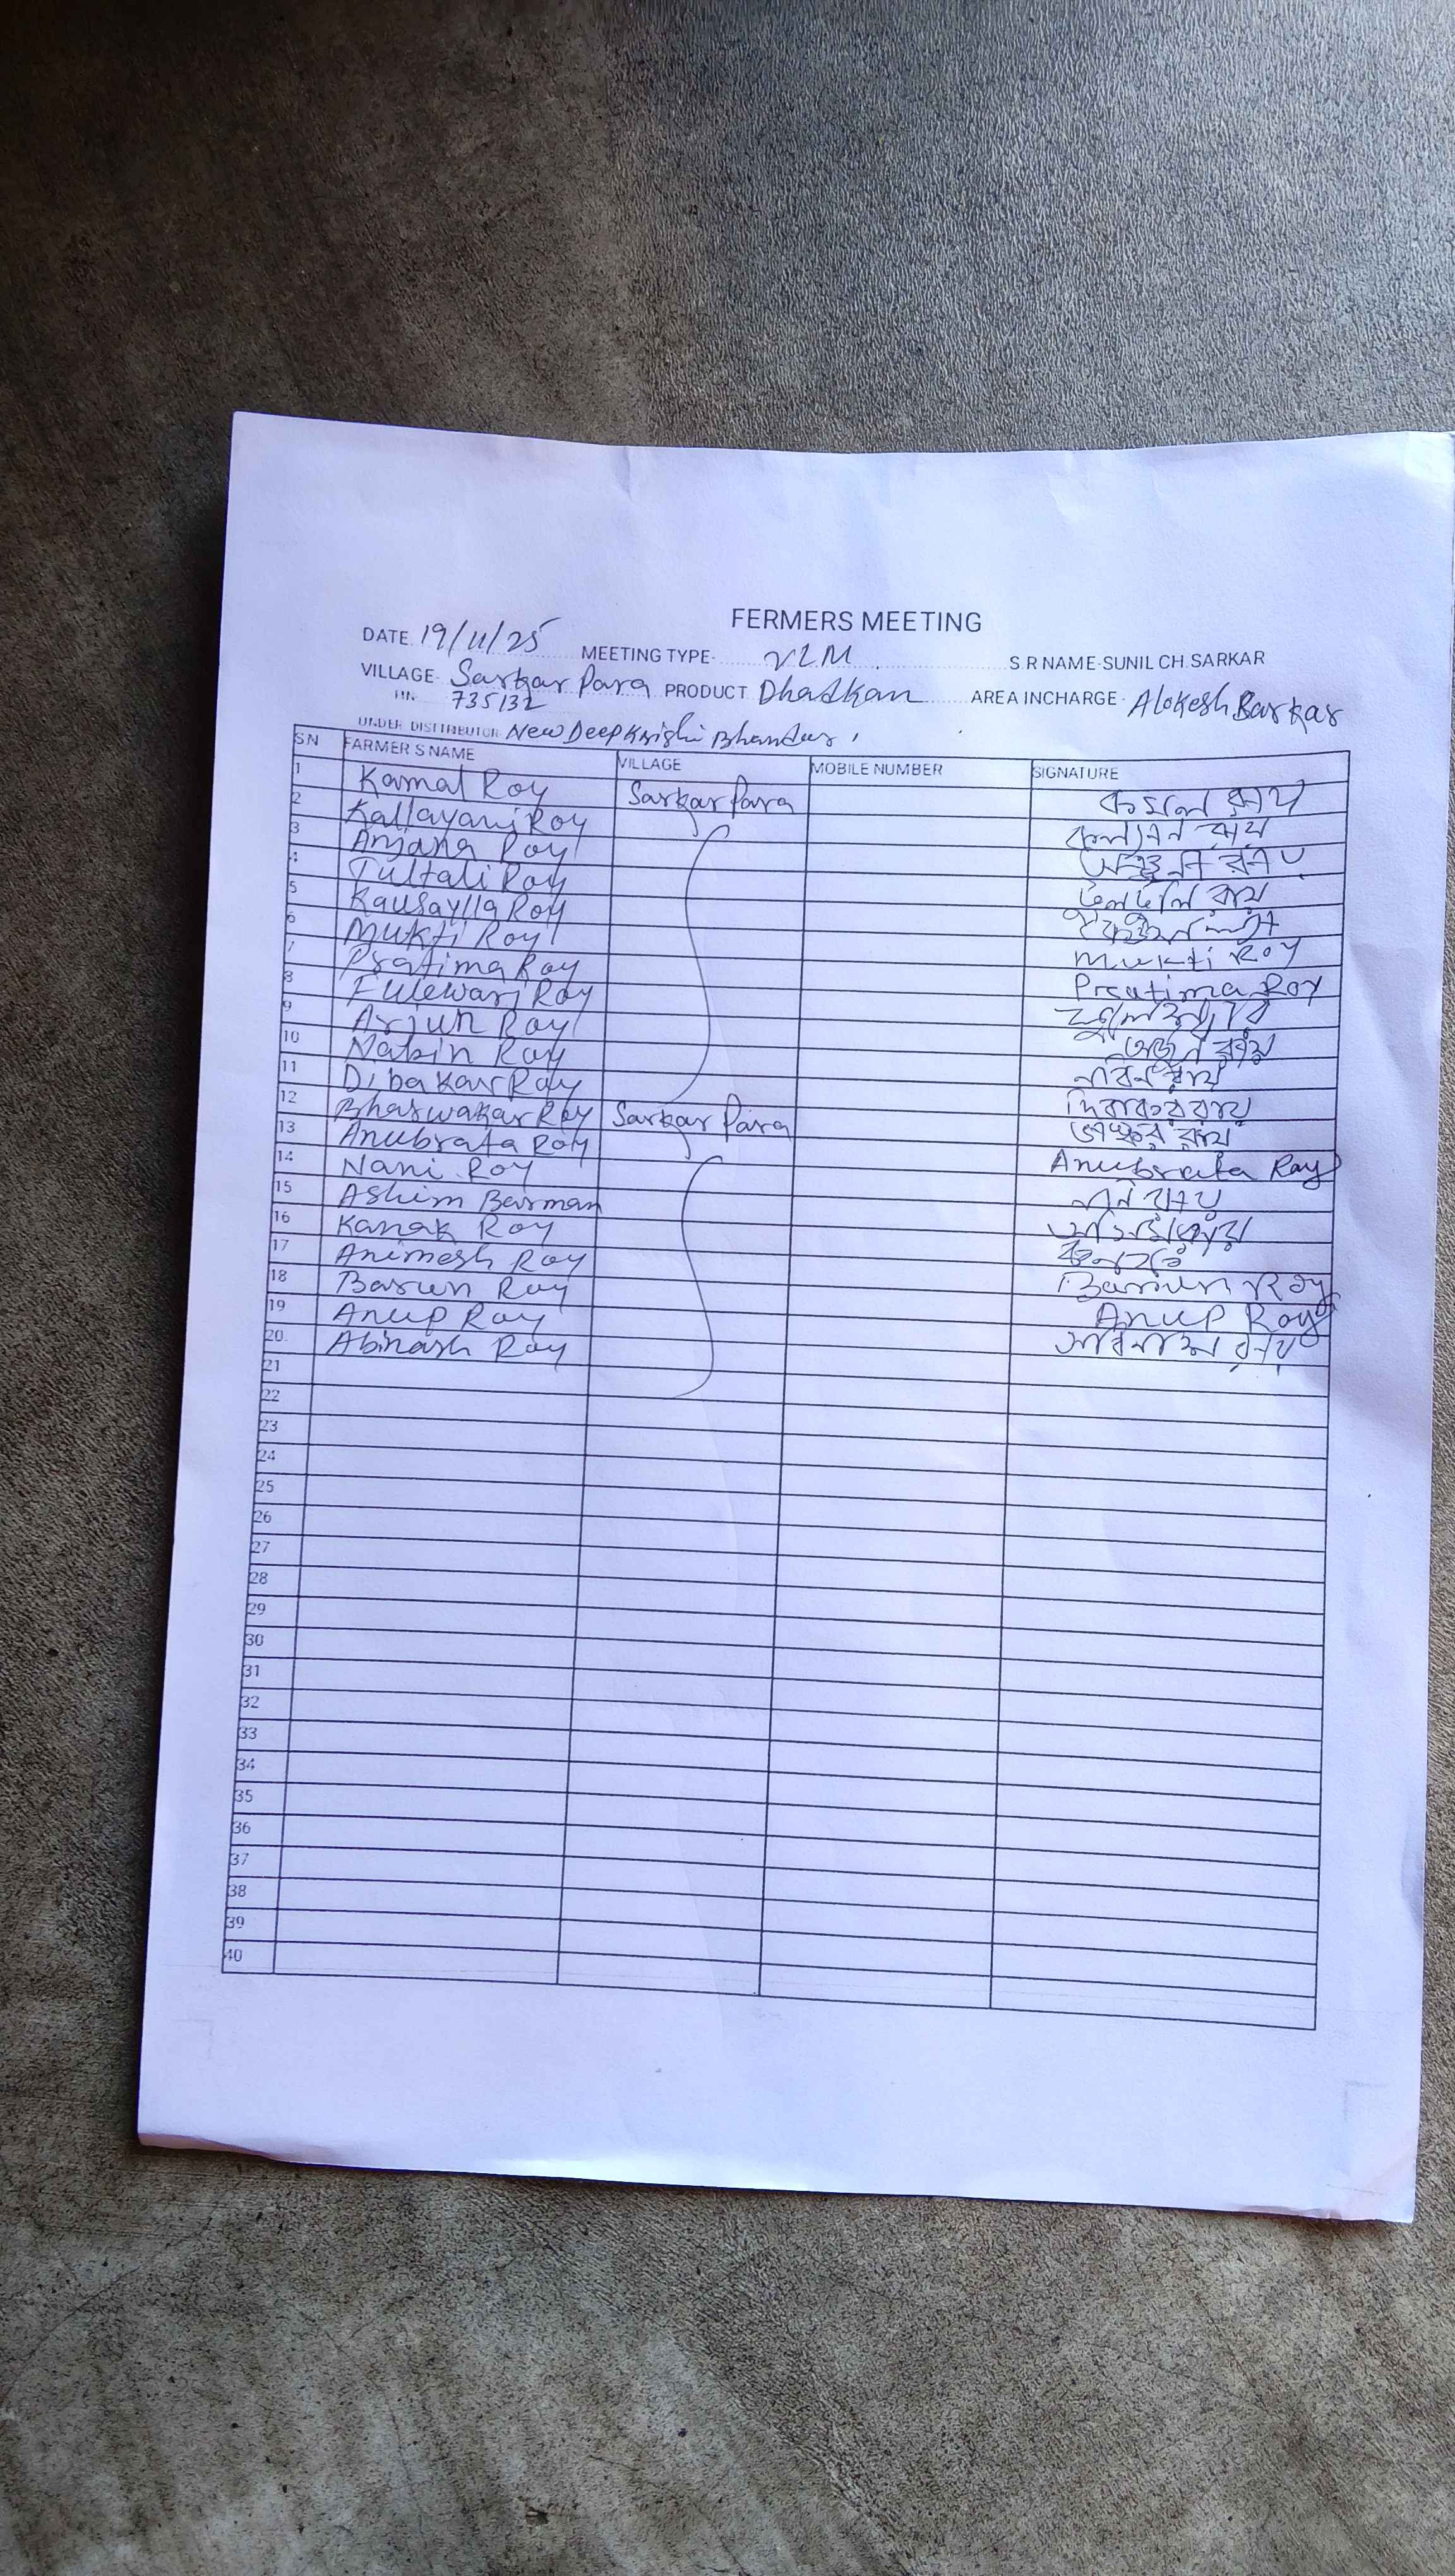 FERMERS MEETING
DATE 19/11/25 MEETING TYPE- VLM S R NAME-SUNIL CH. SARKAR
VILLAGE- Sarkar Para PRODUCT Dhadkan AREA INCHARGE- Alokesh Barkar
735132
UNDER DISTTIBUTOR New Deep Krishi Bhandar
SN FARMER S NAME VILLAGE MOBILE NUMBER SIGNATURE
1 Kamal Roy Sarkar Para কমল রায়
2 Kallayani Roy রায়
3 Anjana Roy
4 Tultali Roy রায়
5 Kausaylla Roy
6 Mukti Roy Mukti Roy
7 Pratima Roy Pratima Roy
8 Fulewari Roy
9 Arjun Roy অর্জুন রায়
10 Nabin Roy নবিন রায়
11 Dibakar Roy দিবাকর রায়
12 Bhaswakar Roy Sarkar Para ভাস্কর রায়
13 Anubrata Roy Anubrata Roy
14 Nani Roy ননি রায়
15 Ashim Barman
16 Kanak Roy
17 Animesh Roy
18 Barun Roy Barun Roy
19 Anup Roy Anup Roy
20 Abinash Roy রায়
21
22
23
24
25
26
27
28
29
30
31
32
33
34
35
36
37
38
39
40